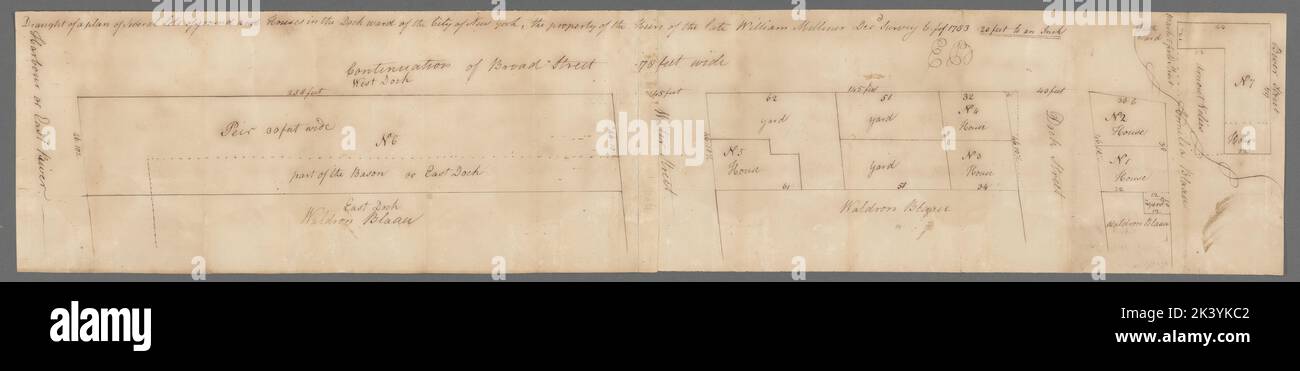 Draught of a plan of several lots of ground and Houses in the Dock ward of the City of New York, the property of the Heirs of the late William Milliner Dec'd 1753 20 feet to an Inch
Harbour or East River
Continuation of Broad Street 78 feet wide
West Dock
Peir 30 feet wide
No 6
part of the Bason or East Dock
East Dock
Waldron Blaau
45 feet
Water Street
62
yard
No 5
House
61
145 feet
51
yard
Yard
51
32
No 4
House
No 3
House
34
Waldron Blaau
40 feet
Dock Street
No 2
House
38
No 1
House
12
yard
12
Waldron Blaau
yard
44
Bever Street
No 7
alamy
alamy
Image ID: 2K3YKC2
www.alamy.com